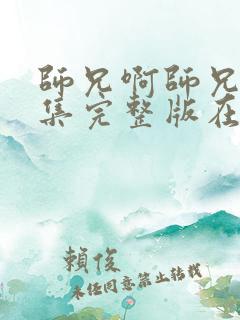 師兄啊師兄
集完整版在
賴俊
未经同意禁止转载